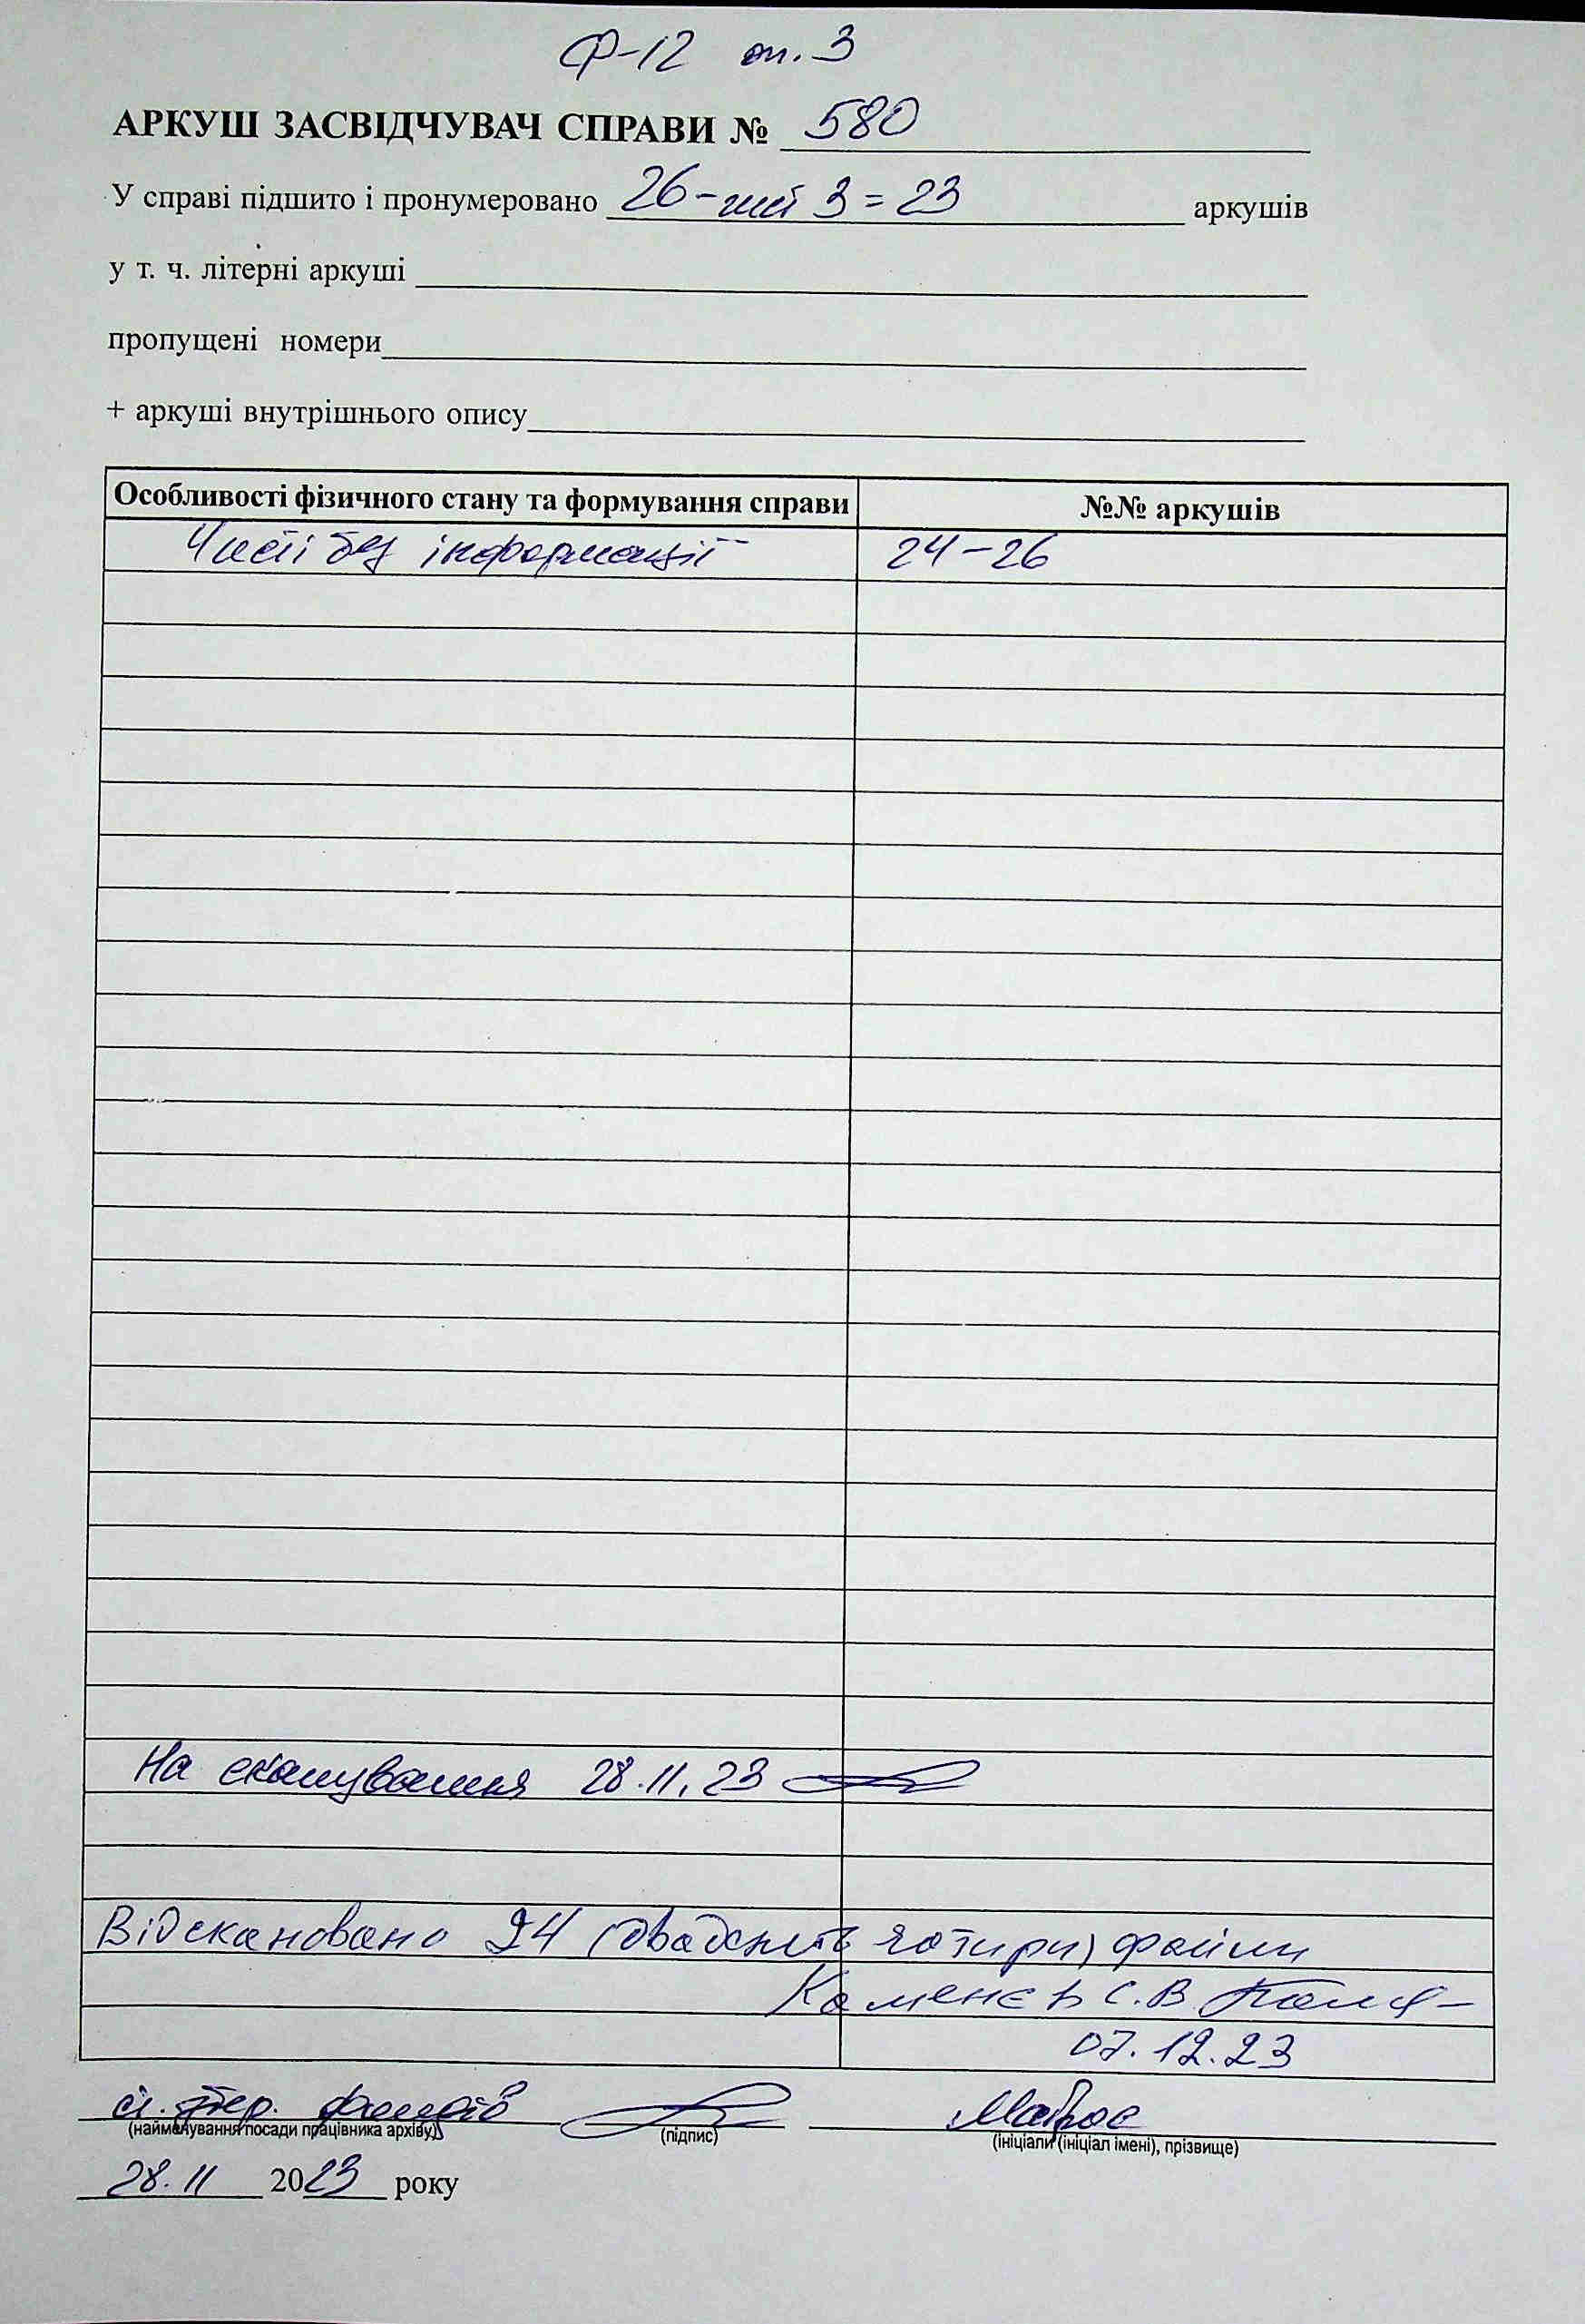 Ф-12 оп. 3
АРКУШ ЗАСВІДЧУВАЧ СПРАВИ № 580
У справі підшито і пронумеровано 26- 3 = 23 аркушів
у т. ч. літерні аркуші
пропущені номери
+ аркуші внутрішнього опису
Особливості фізичного стану та формування справи №№ аркушів
Чисті без інформації 24-26
На сканування 28.11.23
Відскановано 24 (двадцять чотири) файли
Каменєв С.В.
07.12.23
фондів
(найменування посади працівника архіву) (підпис) (ініціали (ініціал імені), прізвище)
28.11 2023 року